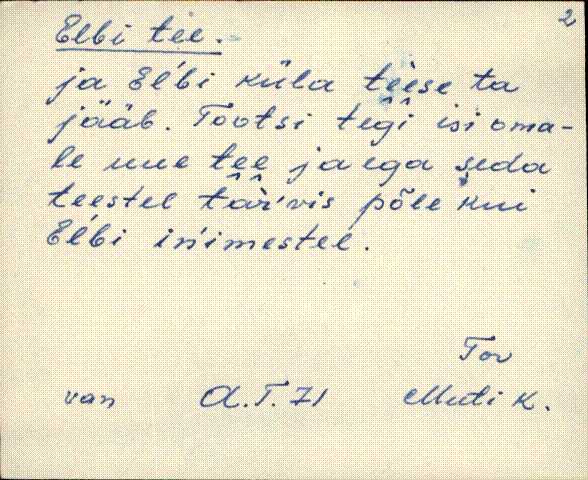 2
Elbi tee.
ja Elʹbi küla tèese ta
jääb. Tootsi tegî̂ isi oma-
le uue tee ja ega seda
teestel tâ̂rʹvis põle kui
Elʹbi inʹimestel.
Tor
van A.T.71 Muti K.